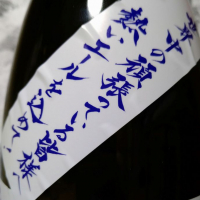 世界中の頑張っている皆様へ
熱いエールを込めて!